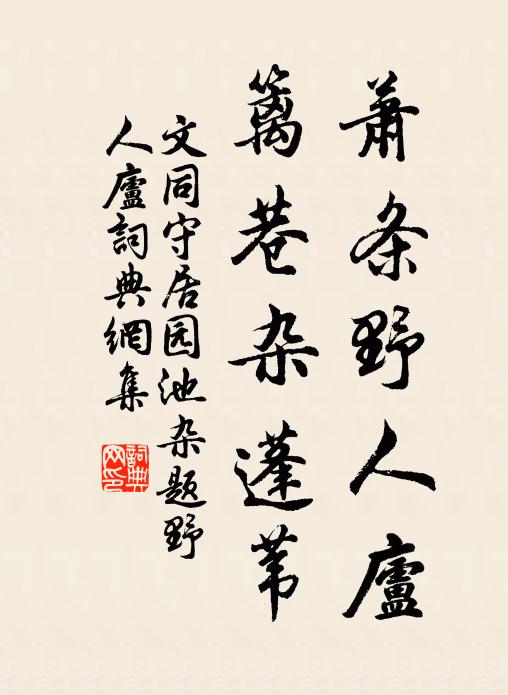 蕭条野人廬
籬巷杂蓬苇
文同守居园池杂题野
人廬詞典網集
詞典网印